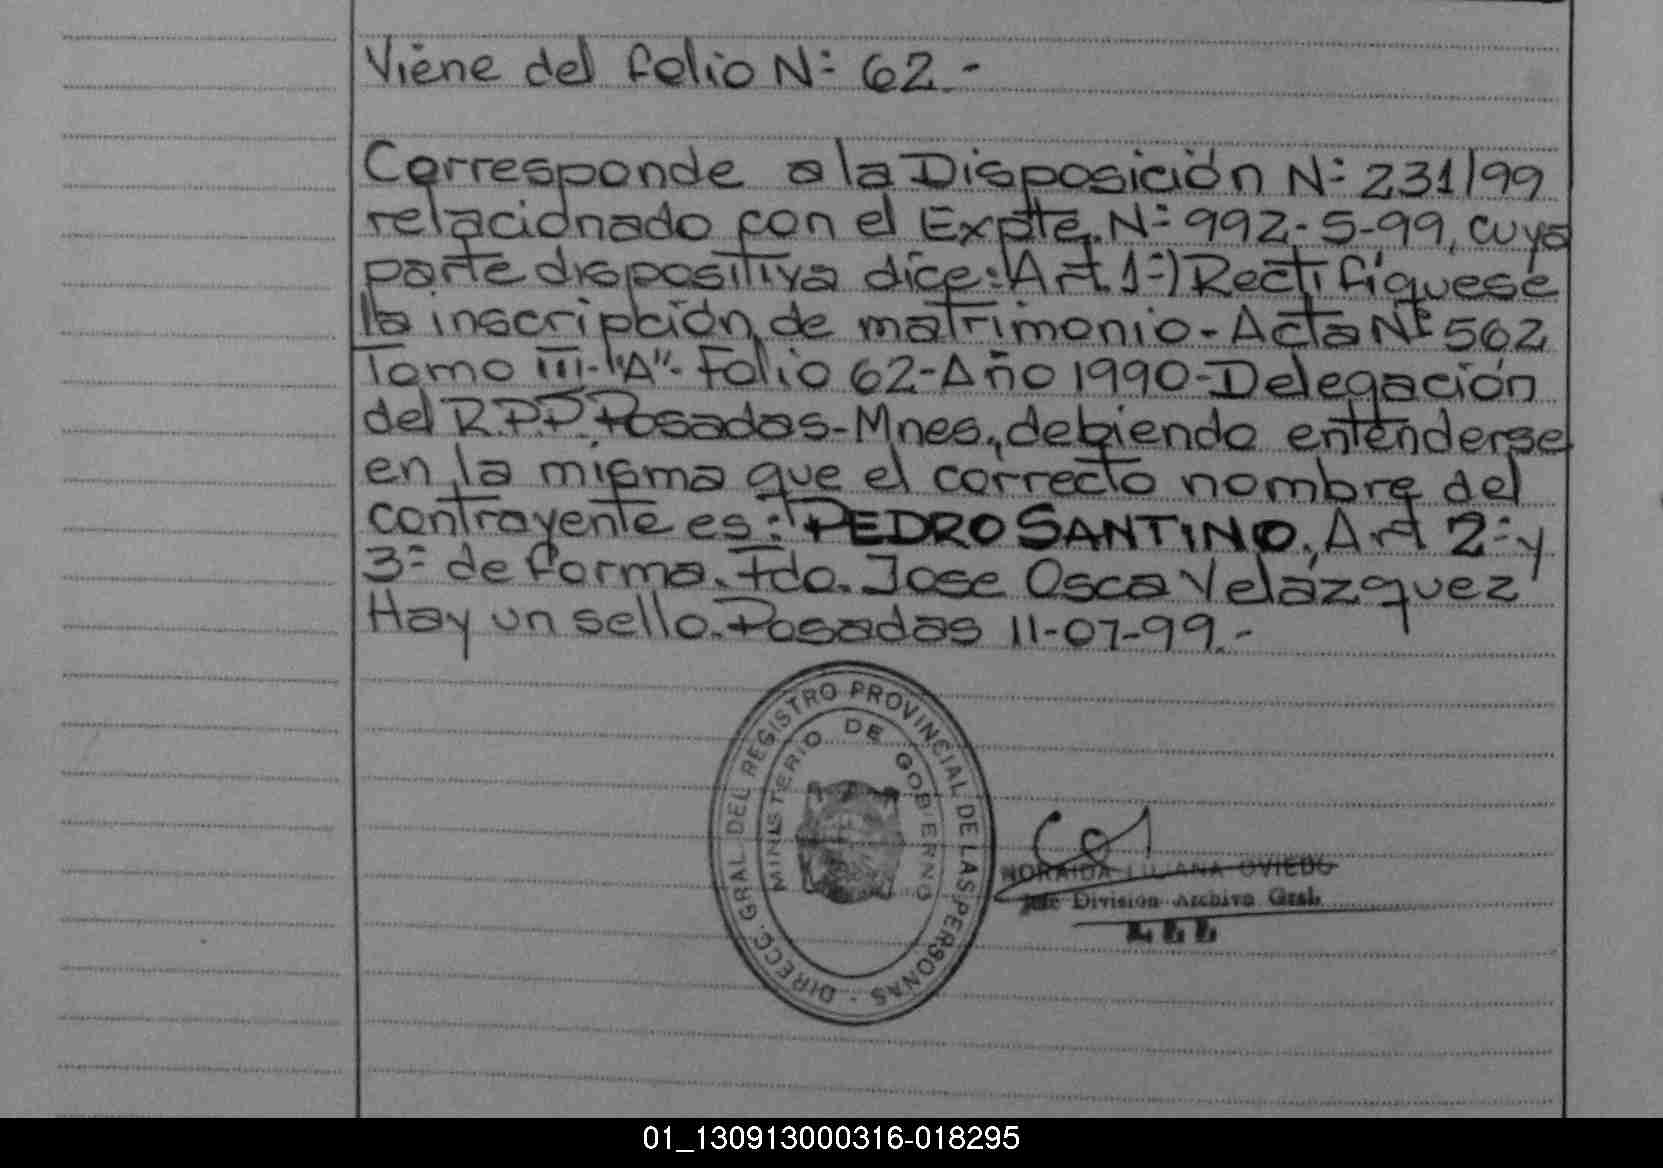 Viene del folio N: 62.-
Corresponde a la Disposición N: 231/99
relacionado con el Expte. N: 992-5-99, cuya
parte dispositiva dice: Art. 1:) Rectifíquese
la inscripción de matrimonio-Acta Nº 562
Tomo III-"A"-Folio 62-Año 1990-Delegación
del R.P.P. Posadas-Mnes., debiendo entenderse
en la misma que el correcto nombre del
contrayente es: PEDRO SANTINO. Art 2: y
3: de forma. Fdo. Jose Osca Velázquez
Hay un sello. Posadas 11-07-99.-
DIRECC. GRAL. DEL REGISTRO PROVINCIAL DE LAS PERSONAS -
MINISTERIO DE GOBIERNO
NORAIDA LILIANA OVIEDO
Jefe División Archivo Gral.
01_130913000316-018295